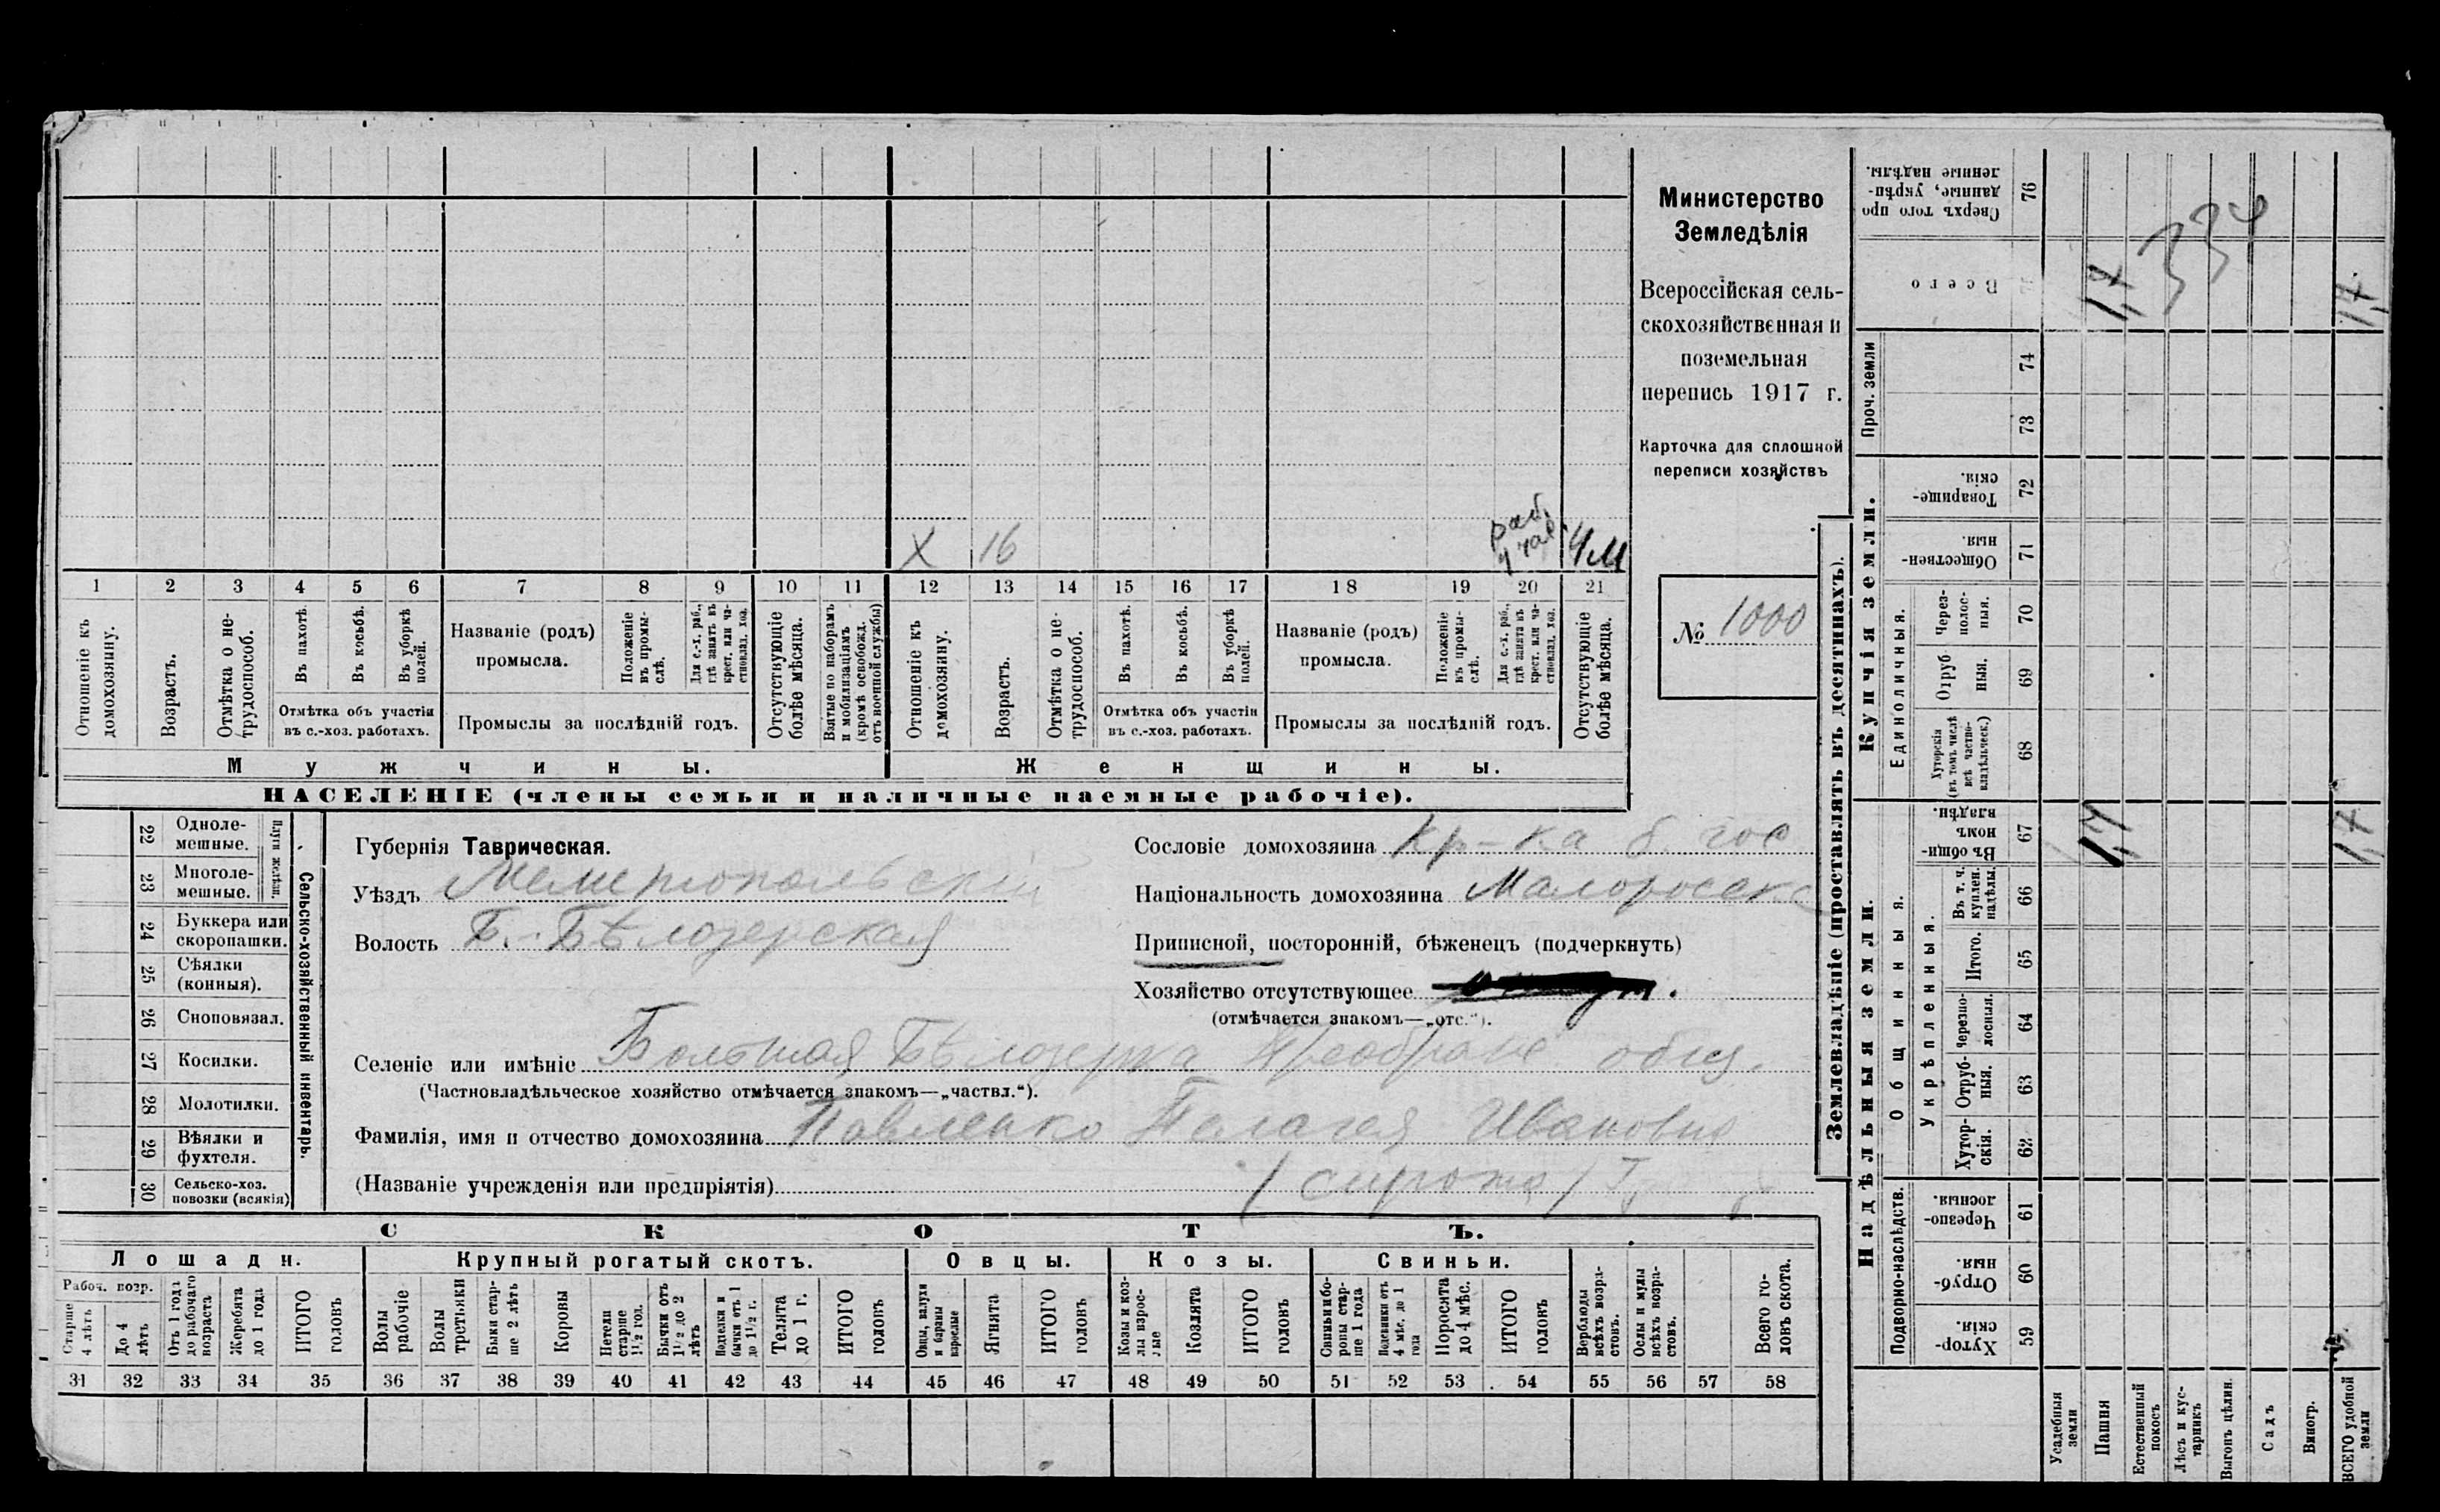 Х 16 раб. у час. 4 м
1 2 3 4 5 6 7 8 9 10 11 12 13 14 15 16 17 18 19 20 21
Отношеніе къ домохозяину.
Возрастъ.
Отмѣтка о не-трудоспособ.
Въ пахотѣ.
Въ косьбѣ.
Въ уборкѣ полей.
Отмѣтка объ участіи
въ с.-хоз. работахъ.
Названіе (родъ)
промысла.
Положеніе въ промы-слѣ.
Для с.-х. раб., гдѣ занятъ въ крест. или ча-стновлад. хоз.
Промыслы за послѣдній годъ.
Отсутствующіе болѣе мѣсяца.
Взятые по наборамъ и мобилизаціямъ (кромѣ освобожд. отъ военной службы)
Отношеніе къ домохозяину.
Возрастъ.
Отмѣтка о не-трудоспособ.
Въ пахотѣ.
Въ косьбѣ.
Въ уборкѣ полей.
Отмѣтка объ участіи
въ с.-хоз. работахъ.
Названіе (родъ)
промысла.
Положеніе въ промы-слѣ.
Для с.-х. раб., гдѣ занята въ крест. или ча-стновлад. хоз.
Промыслы за послѣдній годъ.
Отсутствующіе болѣе мѣсяца.
Мужчины. Женщины.
НАСЕЛЕНІЕ (члены семьи и наличные наемные рабочіе).
Министерство
Земледѣлія
Всероссійская сель-
скохозяйственная и
поземельная
перепись 1917 г.
Карточка для сплошной
переписи хозяйствъ
№ 1000
Сельско-хозяйственный инвентарь.
Плуги желѣзн.
22 Одноле-мешные.
23 Многоле-мешные.
24 Буккера или скоропашки.
25 Сѣялки (конныя).
26 Сноповязал.
27 Косилки.
28 Молотилки.
29 Вѣялки и фухтеля.
30 Сельско-хоз. повозки (всякія)
Губернія Таврическая.
Уѣздъ Мелитопольскій
Волость Б.-Бѣлозерская
Сословіе домохозяина Кр-ка б. гос
Національность домохозяина Малоросска
Приписной, посторонній, бѣженецъ (подчеркнуть)
Хозяйство отсутствующее
(отмѣчается знакомъ—„отс.“).
Селеніе или имѣніе Большая Бѣлозерка Преображ. общ.
(Частновладѣльческое хозяйство отмѣчается знакомъ—„частвл.“).
Фамилія, имя и отчество домохозяина Павленко Пелагея Ивановна
(Названіе учрежденія или предпріятія) /сирота/
СКОТЪ.
Лошади. Крупный рогатый скотъ. Овцы. Козы. Свиньи.
Рабоч. возр.
Старше 4 лѣтъ
До 4 лѣтъ
Отъ 1 года до рабочаго возраста
Жеребята до 1 года
ИТОГО головъ
Волы рабочіе
Волы третьяки
Быки стар-ше 2 лѣтъ
Коровы
Нетели старше 1½ год.
Бычки отъ 1½ до 2 лѣтъ
Подтелки и бычки отъ 1 до 1½ г.
Телята до 1 г.
ИТОГО головъ
Овцы, валухи и бараны взрослые
Ягнята
ИТОГО головъ
Козы и коз-лы взрос-лые
Козлята
ИТОГО головъ
Свиньи и бо-ровы стар-ше 1 года
Подсвинки отъ 4 мѣс. до 1 года
Поросята до 4 мѣс.
ИТОГО головъ
Верблюды всѣхъ возра-стовъ.
Ослы и мулы всѣхъ возра-стовъ.
Всего го-ловъ скота.
31 32 33 34 35 36 37 38 39 40 41 42 43 44 45 46 47 48 49 50 51 52 53 54 55 56 57 58
Землевладѣніе (проставлять въ десятинахъ).
Купчія земли.
Надѣльныя земли.
Проч. земли
Единоличныя.
Общинныя.
Укрѣпленныя.
Подворно-наслѣдств.
Сверхъ того про данные, укрѣ-пленные надѣлы. 76
Всего 75 1,7 1,7
334
74
73
Товарище-скія. 72
Обществен-ныя 71
Через-полос-ныя. 70
Отруб-ныя. 69
Хуторскія (въ томъ числѣ всѣ частно-владѣльческ.) 68
Въ общин-номъ владѣн. 67 1,7 1,7
Въ т. ч. куплен. надѣлы. 66
Итого. 65
Черезпо-лосныя. 64
Отруб-ныя. 63
Хутор-скія. 62
Черезпо-лосныя. 61
Отруб-ныя. 60
Хутор-скія. 59
Усадебныя земли
Пашня
Естественный покосъ
Лѣсъ и кус-тарникъ
Выгонъ цѣлин.
Садъ
Виногр.
ВСЕГО удобной земли